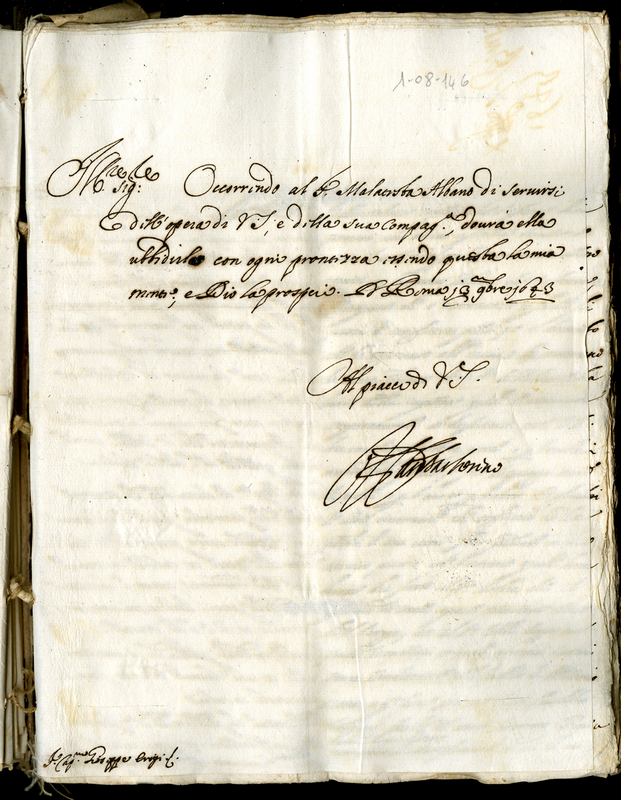 1-08-146
Ill.re Sig.re
Occorrendo al S. Malacosta Albano di servirsi
dell'opera di V.S. e della sua Compag.a, dourà ella
ubbidirlo con ogni prontezza essendo questa la mia
mente, e Dio la prosperi. Di Roma 13 9bre 1643
Al piacer di V.S.
Barberino